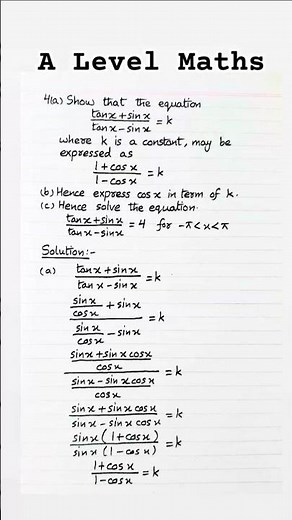 A Level Maths
4(a) Show that the equation
(tanx + sinx)/(tanx - sinx) = k
where k is a constant, may be
expressed as
(1 + cosx)/(1 - cosx) = k
(b) Hence express cosx in term of k.
(c) Hence solve the equation.
(tanx + sinx)/(tanx - sinx) = 4 for -π < x < π
Solution:-
(a) (tanx + sinx)/(tanx - sinx) = k
(sinx/cosx + sinx)/(sinx/cosx - sinx) = k
((sinx + sinx cosx)/cosx)/((sinx - sinx cosx)/cosx) = k
(sinx + sinx cosx)/(sinx - sinx cosx) = k
(sinx (1 + cosx))/(sinx (1 - cosx)) = k
(1 + cosx)/(1 - cosx) = k